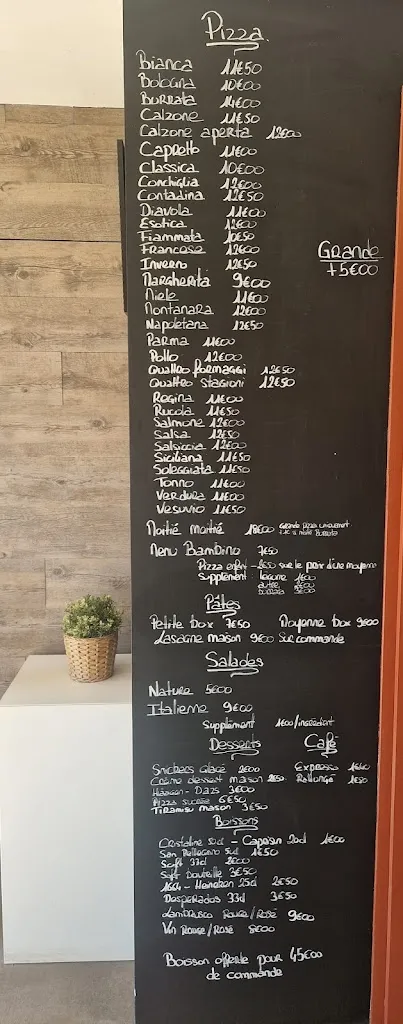 Pizza
Bianca 11€50
Bologna 10€00
Burrata 14€00
Calzone 11€50
Calzone aperta 12€00
Capretto 11€00
Classica 10€00
Conchiglia 12€00
Contadina 12€50
Diavola 11€00
Esotica 12€00
Fiammata 10€50
Francese 12€00
Grande
+5€00
Inverno 12€50
Margherita 9€00
Miele 11€00
Montanara 12€00
Napoletana 12€50
Parma 11€00
Pollo 12€00
Quattro formaggi 12€50
Quattro Stagioni 12€50
Regina 11€00
Rucola 11€50
Salmone 12€00
Salsa 12€50
Salsiccia 12€00
Siciliana 11€50
Soleggiata 11€50
Tonno 11€00
Verdura 11€00
Vesuvio 11€50
Moitié Moitié 18€00 Grande pizza uniquement
Menu Bambino 7€50
Pizza enfant -2€50 sur le prix d'une moyenne
Supplément légume 1€00
autre
burrata 3€00
Pâtes
Petite box 7€50 Moyenne box 9€00
Lasagne maison 9€00 Sur commande
Salades
Nature 5€00
Italienne 9€00
Supplément 1€00/ingrédient
Desserts Café
Snickers Glacé 2€00 Expresso
Crème dessert maison 2€50 Rallongé
Häagen-Dazs 3€00
Pizza sucrée 6€50
Tiramisu maison 3€50
Boissons
Cristaline 50cl - Caprisun 20cl 1€00
San Pellegrino 50cl 1€50
Soft 33cl 2€00
Soft bouteille 3€50
1664 - Heineken 25cl 2€50
Desperados 33cl 3€50
Lambrusco Rouge/Rosé 9€00
Vin Rouge/Rosé 8€00
Boisson offerte pour 45€00
de commande